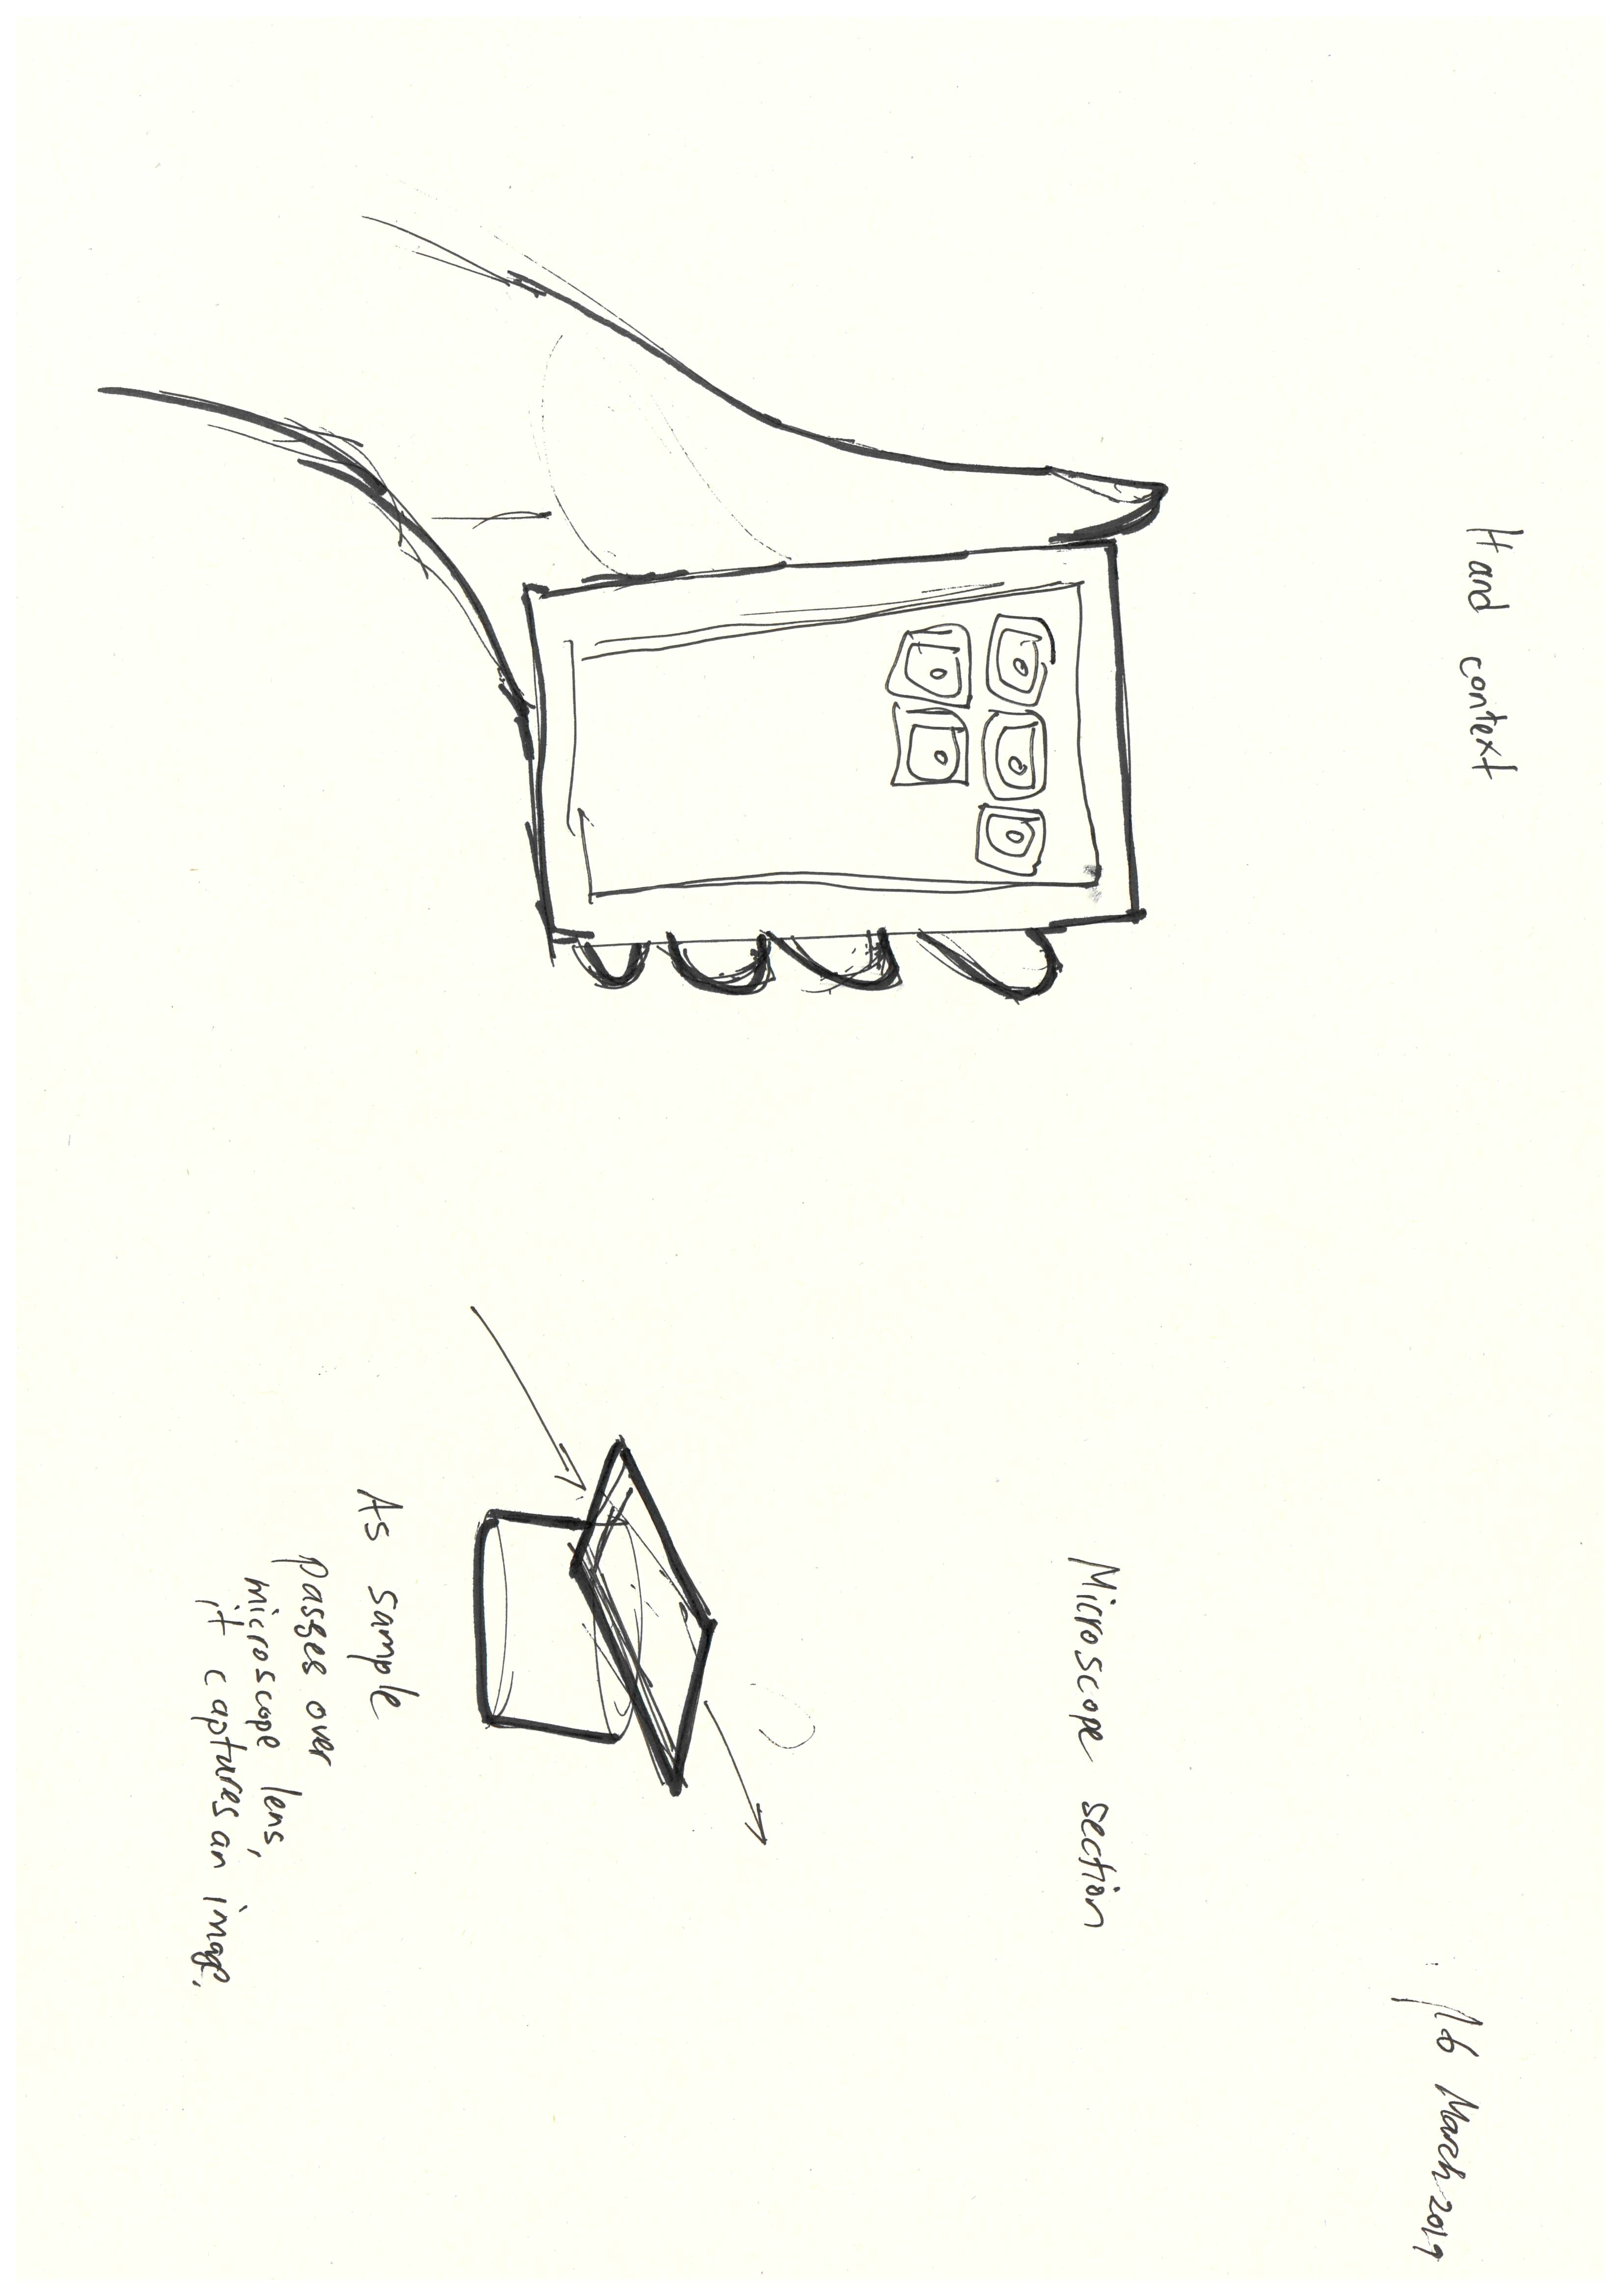 Hand context
16 March 2019
Microscope section
As sample
passes over
microscope lens,
it captures an image.